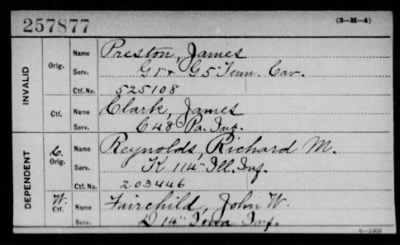 257877 (3-M-4)
INVALID
Orig. Name Preston, James
Serv. G 1 & G 5 Tenn. Cav.
Ctf. No. 525108
Ctf. Name Clark, James
Serv. C 48 Pa. Inf.
DEPENDENT
Orig. Name Reynolds, Richard M.
Serv. K 114" Ill. Inf.
Ctf. No. 203446
W. Ctf. Name Fairchild, John W.
Serv. D 14" Iowa Inf.